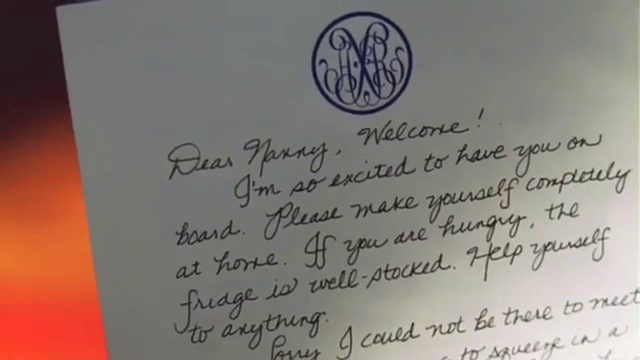 Dear Nanny, Welcome!
I'm so excited to have you on
board. Please make yourself completely
at home. If you are hungry, the
fridge is well-stocked. Help yourself
to anything.
Sorry I could not be there to meet
to squeeze in a